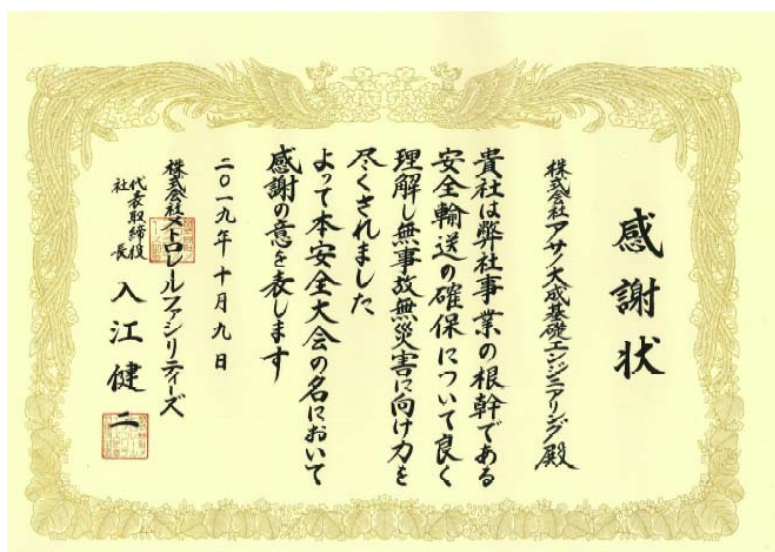 感謝状
株式会社アサノ大成基礎エンジニアリング殿
貴社は弊社事業の根幹である
安全輸送の確保について良く
理解し無事故無災害に向け力を
尽くされました
よって本安全大会の名において
感謝の意を表します
二〇一九年十月九日
株式会社メトロレールファシリティーズ
代表取締役
社長
入江健二